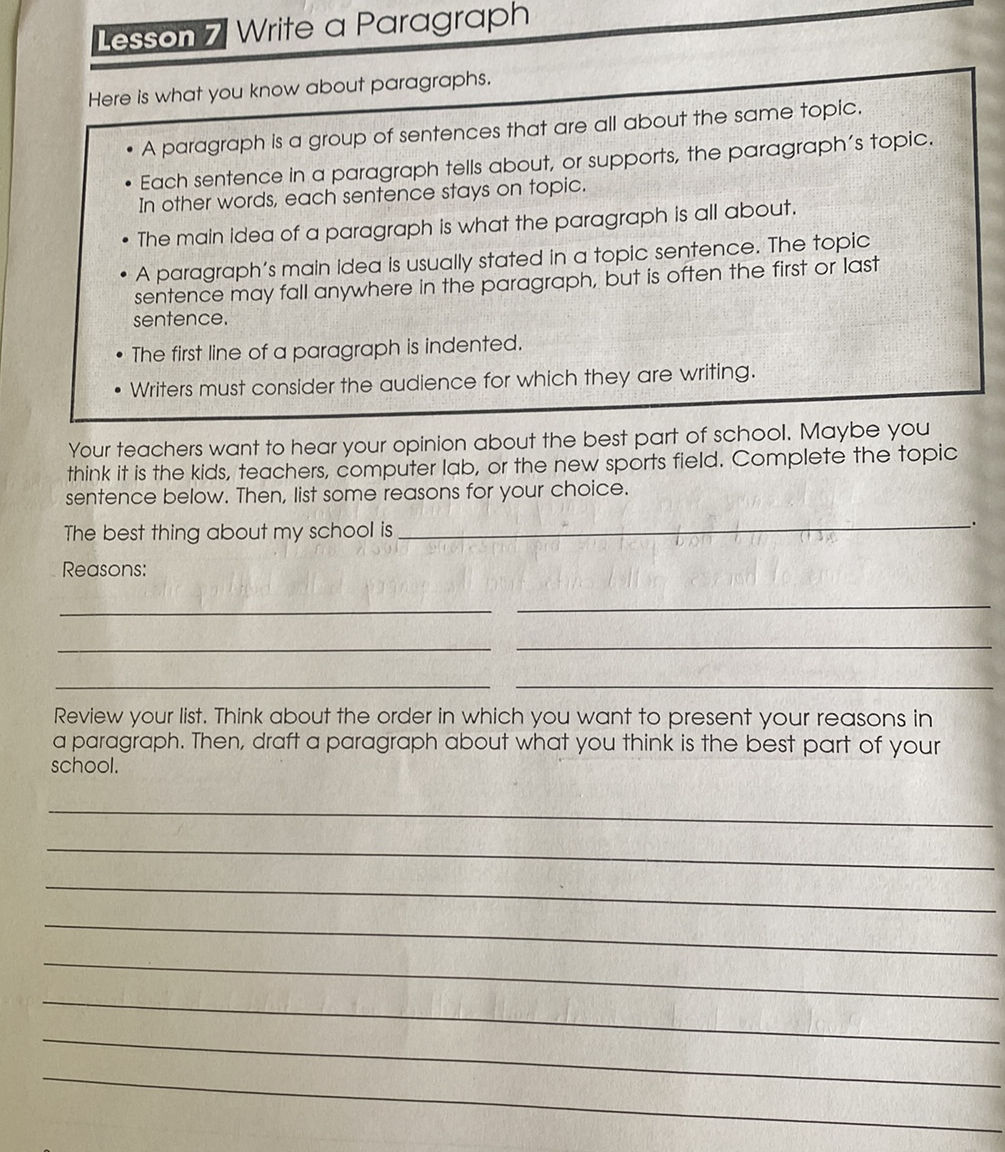 Lesson 7 Write a Paragraph
Here is what you know about paragraphs.
• A paragraph is a group of sentences that are all about the same topic.
• Each sentence in a paragraph tells about, or supports, the paragraph's topic.
In other words, each sentence stays on topic.
• The main idea of a paragraph is what the paragraph is all about.
• A paragraph's main idea is usually stated in a topic sentence. The topic
sentence may fall anywhere in the paragraph, but is often the first or last
sentence.
• The first line of a paragraph is indented.
• Writers must consider the audience for which they are writing.
Your teachers want to hear your opinion about the best part of school. Maybe you
think it is the kids, teachers, computer lab, or the new sports field. Complete the topic
sentence below. Then, list some reasons for your choice.
The best thing about my school is .
Reasons:
Review your list. Think about the order in which you want to present your reasons in
a paragraph. Then, draft a paragraph about what you think is the best part of your
school.